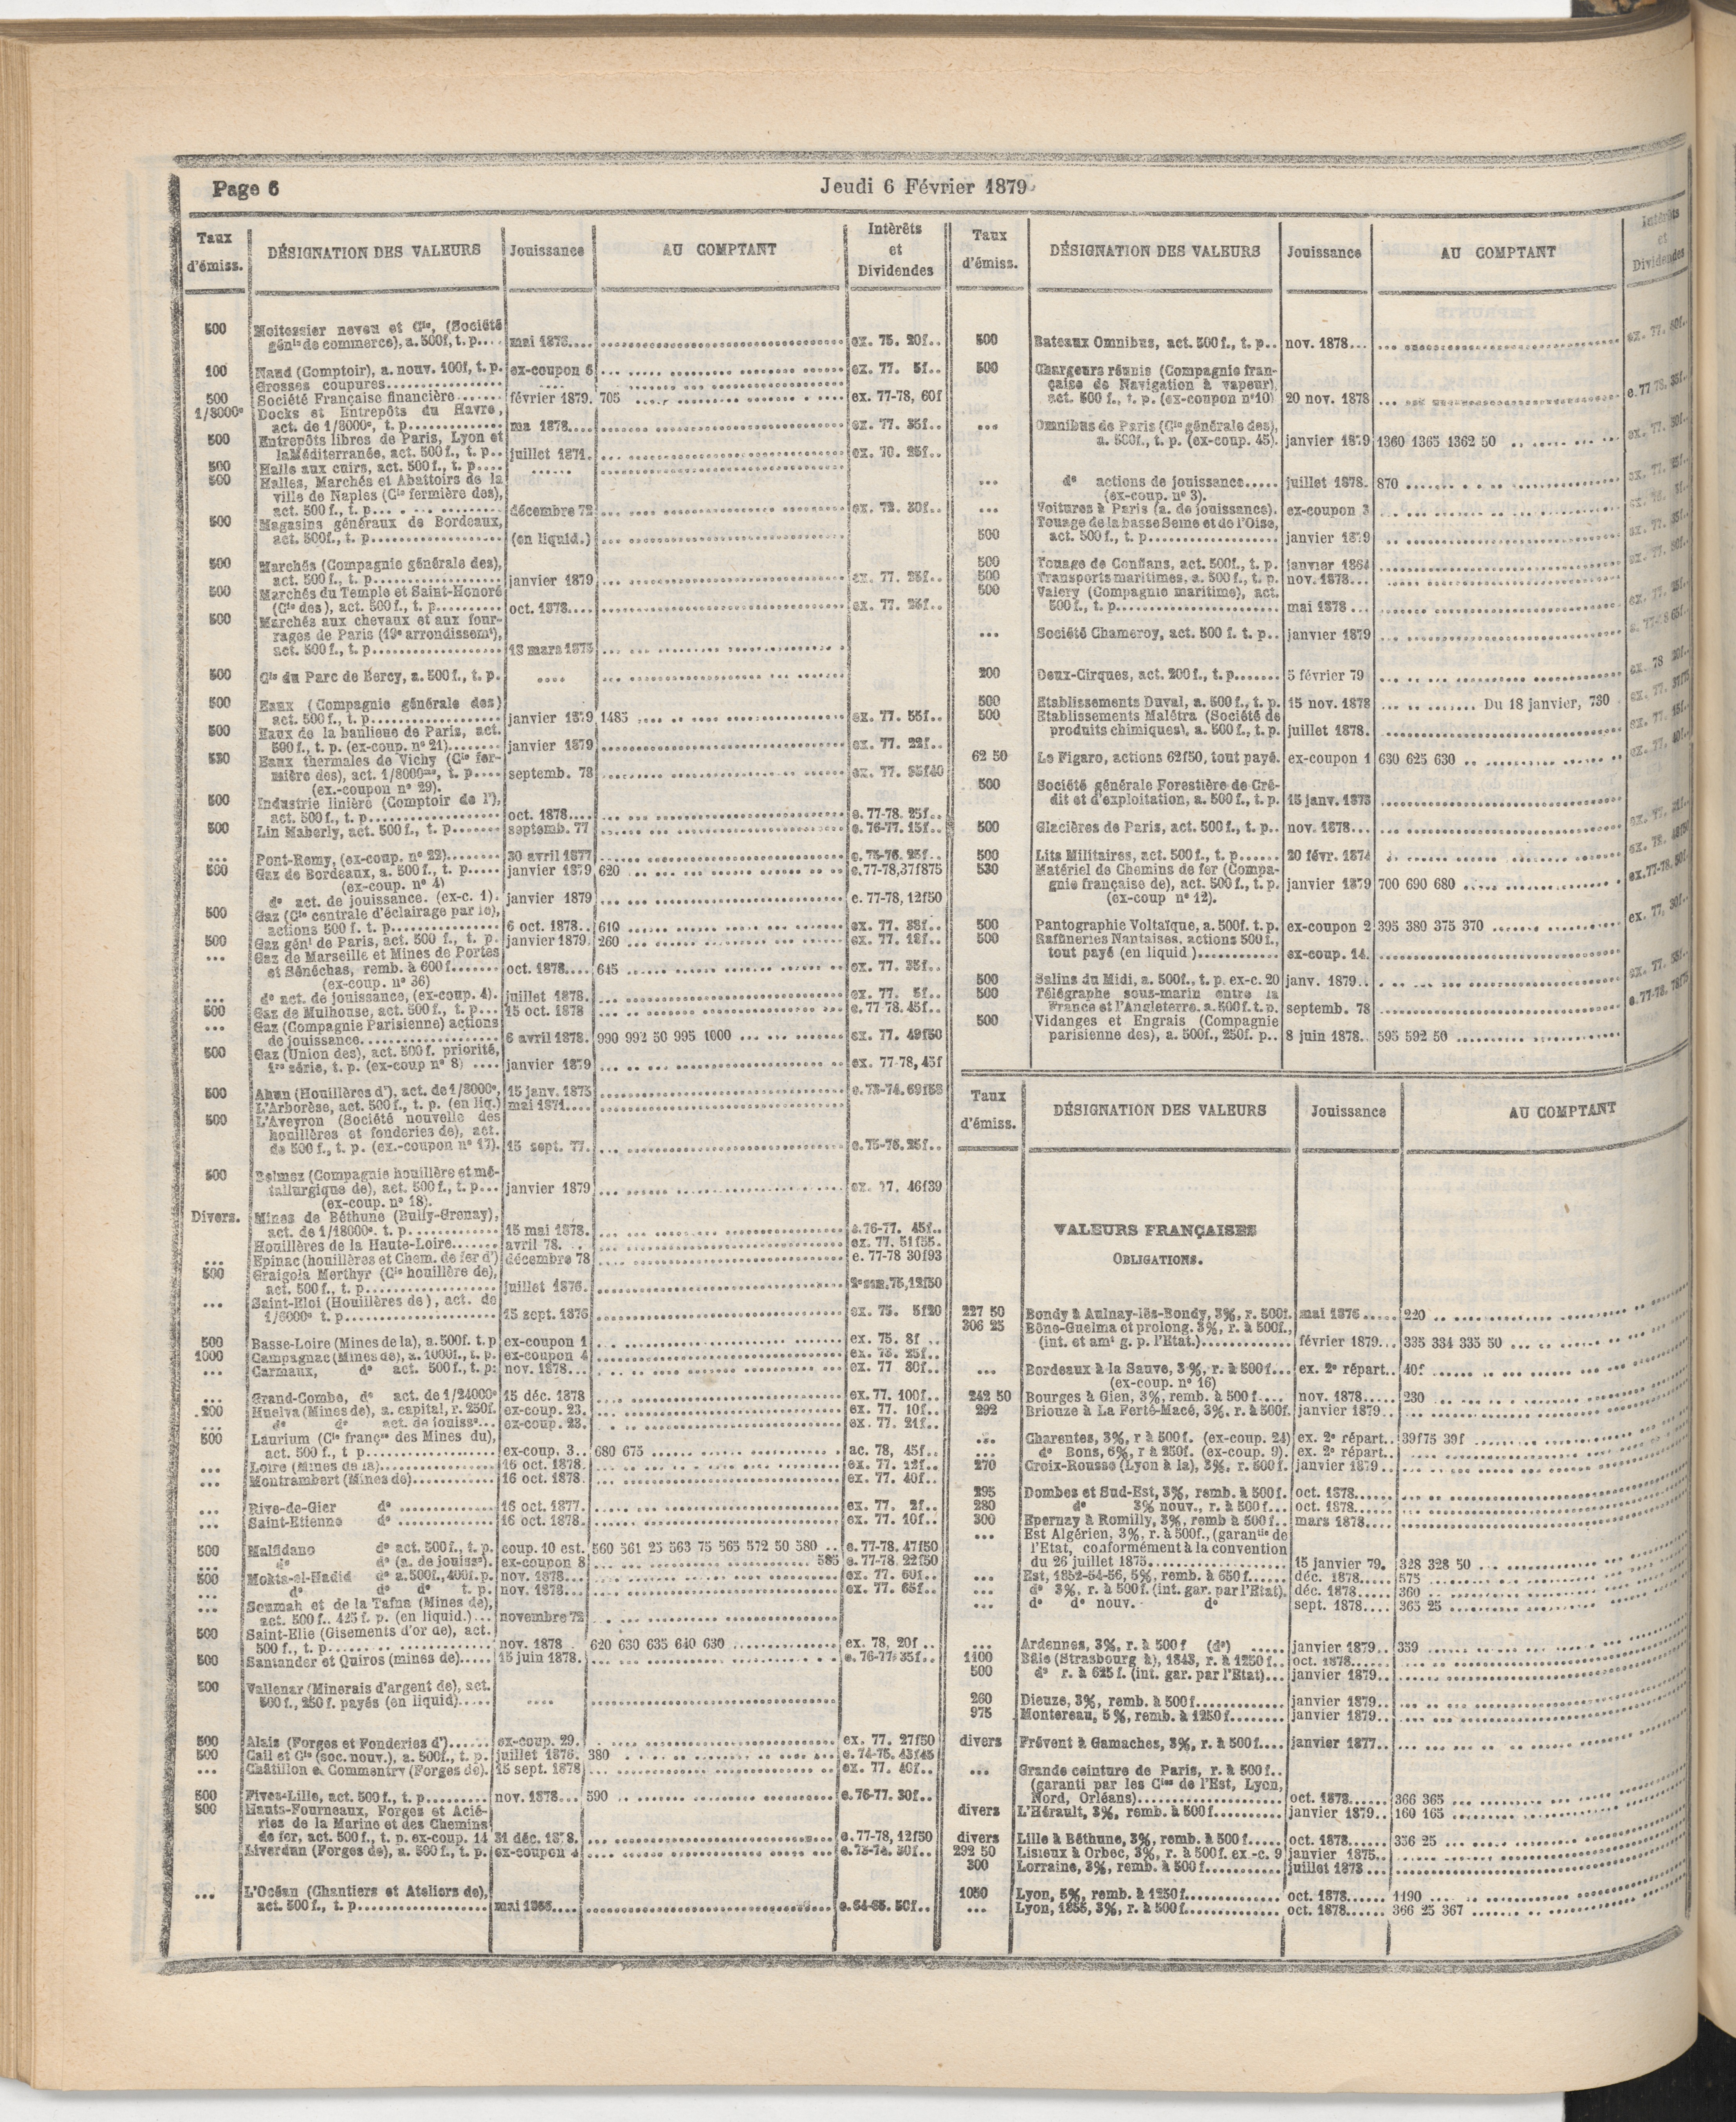 Page 6
Jeudi 6 Février 1879
Taux d'émiss. DÉSIGNATION DES VALEURS Jouissance AU COMPTANT Intérêts et Dividendes
500 Moitessier neveu et Cie, (Société
génle de commerce), a. 500f, t. p.... mai 1878.... ex. 75. 20f..
100 Naud (Comptoir), a. nouv. 100f, t. p. ex-coupon 6 ex. 77. 5f..
Grosses coupures
500 Société Française financière février 1879. 705 ex. 77-78, 60f
1/8000e Docks et Entrepôts du Havre,
act. de 1/8000e, t. p. ma 1878.... ex. 77. 35f..
500 Entrepôts libres de Paris, Lyon et
la Méditerranée, act. 500 f., t. p.. juillet 1871. ex. 70. 25f..
500 Halle aux cuirs, act. 500 f., t. p....
500 Halles, Marchés et Abattoirs de la
ville de Naples (Cie fermière des),
act. 500 f., t. p. décembre 72 ex. 72. 30f..
500 Magasins généraux de Bordeaux,
act. 500f., t. p. (en liquid.)
500 Marchés (Compagnie générale des),
act. 500 f., t. p. janvier 1879 ex. 77. 25f..
500 Marchés du Temple et Saint-Honoré
(Cie des), act. 500 f., t. p. oct. 1878.... ex. 77. 25f..
500 Marchés aux chevaux et aux four-
rages de Paris (19e arrondissemt),
act. 500 f., t. p. 18 mars 1875
500 Cie du Parc de Bercy, a. 500 f., t. p.
500 Eaux (Compagnie générale des)
act. 500 f., t. p. janvier 1879 1485 ex. 77. 55f..
500 Eaux de la banlieue de Paris, act.
500 f., t. p. (ex-coup. no 21) janvier 1879 ex. 77. 22f..
530 Eaux thermales de Vichy (Cie fer-
mière des), act. 1/8000me, t. p. septemb. 78 ex. 77. 35f40
(ex.-coupon no 29).
500 Industrie linière (Comptoir de l'),
act. 500 f., t. p. oct. 1878.... e. 77-78. 25f..
500 Lin Maberly, act. 500 f., t. p. septemb. 77 e. 76-77. 15f..
... Pont-Remy, (ex-coup. no 22) 30 avril 1877 e. 75-76. 25f..
500 Gaz de Bordeaux, a. 500 f., t. p. janvier 1879 620 e. 77-78, 37f875
(ex-coup. no 4)
do act. de jouissance. (ex-c. 1). janvier 1879 e. 77-78, 12f50
500 Gaz (Cie centrale d'éclairage par le),
actions 500 f. t. p. 6 oct. 1878.. 610 ex. 77. 38f..
500 Gaz génl de Paris, act. 500 f., t. p. janvier 1879. 260 ex. 77. 18f..
... Gaz de Marseille et Mines de Portes
et Sénéchas, remb. à 600 f. oct. 1878.... 645 ex. 77. 35f..
(ex-coup. no 36)
... do act. de jouissance, (ex-coup. 4). juillet 1878. ex. 77. 5f..
500 Gaz de Mulhouse, act. 500 f., t. p. 15 oct. 1878 e. 77 78. 45f..
... Gaz (Compagnie Parisienne) actions
de jouissance 6 avril 1878. 990 992 50 995 1000 ex. 77. 49f50
500 Gaz (Union des), act. 500 f. priorité,
1re série, t. p. (ex-coup no 8) janvier 1879 ex. 77-78, 45f
500 Ahun (Houillères d'), act. de 1/8000e, 15 janv. 1875 e. 73-74. 69f58
L'Arborèse, act. 500 f., t. p. (en liq.) mai 1871....
500 L'Aveyron (Société nouvelle des
houillères et fonderies de), act.
de 500 f., t. p. (ex.-coupon no 17). 15 sept. 77. e. 75-76. 25f..
500 Belmez (Compagnie houillère et mé-
tallurgique de), act. 500 f., t. p... janvier 1879 ex. 77. 46f39
(ex-coup. no 18).
Divers. Mines de Béthune (Bully-Grenay),
act. de 1/18000e. t. p. 15 mai 1878. e. 76-77. 45f..
Houillères de la Haute-Loire avril 78. ex. 77. 51f55.
... Epinac (houillères et Chem. de fer d') décembre 78 e. 77-78 30f93
500 Graigola Merthyr (Cie houillère de),
act. 500 f., t. p. juillet 1876. 2e sem. 75, 12f50
... Saint-Eloi (Houillères de), act. de
1/6000e t. p. 15 sept. 1876 ex. 75. 5f20
500 Basse-Loire (Mines de la), a. 500f. t. p ex-coupon 1 ex. 75. 8f ..
1000 Campagnac (Mines de), a. 1000f., t. p. ex-coupon 4 ex. 75. 25f..
... Carmaux, do act. 500 f., t. p: nov. 1878... ex. 77 80f..
... Grand-Combe, do act. de 1/24000e 15 déc. 1878 ex. 77. 100f..
200 Huelva (Mines de), a. capital, r. 250f. ex-coup. 23. ex. 77. 10f..
... do do act. de jouisse... ex-coup. 23. ex. 77. 21f..
500 Laurium (Cie françse des Mines du),
act. 500 f., t p. ex-coup. 3.. 680 675 ac. 78, 45f..
... Loire (Mines de la) 16 oct. 1878. ex. 77. 12f..
... Montrambert (Mines de) 16 oct. 1878. ex. 77. 40f..
... Rive-de-Gier do 16 oct. 1877. ex. 77. 2f..
... Saint-Etienne do 16 oct. 1878. ex. 77. 10f..
500 Malfidano do act. 500 f., t. p. coup. 10 est. 560 561 25 563 75 565 572 50 580 .. e. 77-78. 47f50
... do do (a. de jouisse). ex-coupon 8 585 e. 77-78. 22f50
500 Mokta-el-Hadid do a. 500f., 400f. p. nov. 1878... ex. 77. 60f..
... do do do t. p. nov. 1878... ex. 77. 65f..
... Soumah et de la Tafna (Mines de),
act. 500 f.. 425 f. p. (en liquid.)... novembre 72
500 Saint-Elie (Gisements d'or de), act.
500 f., t. p. nov. 1878 . 620 630 635 640 630 ex. 78, 20f ..
500 Santander et Quiros (mines de) 15 juin 1878. e. 76-77. 35f..
500 Vallenar (Minerais d'argent de), act.
500 f., 250 f. payés (en liquid)
500 Alais (Forges et Fonderies d') ex-coup. 29. ex. 77. 27f50
500 Cail et Cie (soc. nouv.), a. 500f., t. p. juillet 1876. 380 e. 74-75. 43f45
... Châtillon et Commentry (Forges de). 15 sept. 1878 ex. 77. 40f..
500 Fives-Lille, act. 500 f., t. p. nov. 1878... 590 e. 76-77. 30f..
500 Hauts-Fourneaux, Forges et Acié-
ries de la Marine et des Chemins
de fer, act. 500 f., t. p. ex-coup. 14 31 déc. 1878. e. 77-78, 12f50
Liverdun (Forges de), a. 500 f., t. p. ex-coupon 4 e. 73-74. 30f..
... L'Océan (Chantiers et Ateliers de),
act. 500 f., t. p. mai 1866.... e. 64-65. 50f..
Taux d'émiss. DÉSIGNATION DES VALEURS Jouissance AU COMPTANT Intérêts et Dividendes
500 Bateaux Omnibus, act. 500 f., t. p.. nov. 1878... ex. 77. 80f..
500 Chargeurs réunis (Compagnie fran-
çaise de Navigation à vapeur),
act. 500 f., t. p. (ex-coupon no 10) 20 nov. 1878 e. 77 78, 35f..
... Omnibus de Paris (Cie générale des),
a. 500f., t. p. (ex-coup. 45). janvier 1879 1360 1365 1362 50
... do actions de jouissance juillet 1878. 870 ex. 77. 25f..
(ex-coup. no 3).
... Voitures à Paris (a. de jouissance). ex-coupon 3
Touage de la basse Seine et de l'Oise,
500 act. 500 f., t. p. janvier 1879 ex. 77. 35f..
500 Touage de Conflans, act. 500f., t. p. janvier 1864
500 Transports maritimes, a. 500 f., t. p. nov. 1878...
500 Valery (Compagnie maritime), act.
500 f., t. p. mai 1878 ... ex. 77. 25f..
... Société Chameroy, act. 500 f. t. p.. janvier 1879
200 Deux-Cirques, act. 200 f., t. p. 5 février 79 ex. 78 20f..
500 Etablissements Duval, a. 500 f., t. p. 15 nov. 1878 Du 18 janvier, 730 ex. 77. 37f75
500 Etablissements Malétra (Société de
produits chimiques), a. 500 f., t. p. juillet 1878. ex. 77. 15f..
62 50 Le Figaro, actions 62f50, tout payé. ex-coupon 1 630 625 630 ex. 77. 40f..
500 Société générale Forestière de Cré-
dit et d'exploitation, a. 500 f., t. p. 15 janv. 1873
500 Glacières de Paris, act. 500 f., t. p.. nov. 1878... ex. 77. 21f..
500 Lits Militaires, act. 500 f., t. p. 20 févr. 1874 ex. 78. 48f50
530 Matériel de Chemins de fer (Compa-
gnie française de), act. 500 f., t. p. janvier 1879 700 690 680 ex. 77-78. 50f.
(ex-coup no 12).
500 Pantographie Voltaïque, a. 500f. t. p. ex-coupon 2 395 380 375 370
500 Raffineries Nantaises, actions 500 f.,
tout payé (en liquid) ex-coup. 14. ex. 77, 30f..
500 Salins du Midi, a. 500f., t. p. ex-c. 20 janv. 1879.. ex. 77. 35f..
500 Télégraphe sous-marin entre la
France et l'Angleterre. a. 500 f. t. p. septemb. 78 e. 77-78. 78f75
500 Vidanges et Engrais (Compagnie
parisienne des), a. 500f., 250f. p.. 8 juin 1878. 595 592 50
Taux d'émiss. DÉSIGNATION DES VALEURS Jouissance AU COMPTANT
VALEURS FRANÇAISES
OBLIGATIONS.
227 50 Bondy à Aulnay-lès-Bondy, 3%, r. 500f. mai 1876 220
306 25 Bône-Guelma et prolong. 3%, r. à 500f.,
(int. et amt g. p. l'Etat.) février 1879... 335 334 335 50
... Bordeaux à la Sauve, 3%, r. à 500f... ex. 2e répart.. 40f
(ex-coup. no 16)
242 50 Bourges à Gien, 3%, remb. à 500 f.... nov. 1878 230
292 Briouze à La Ferté-Macé, 3%. r. à 500f. janvier 1879..
... Charentes, 3%, r à 500 f. (ex-coup. 24) ex. 2e répart.. 39f75 39f
... do Bons, 6%, r à 250f. (ex-coup. 9). ex. 2e répart..
270 Croix-Rousse (Lyon à la), 3%, r. 500 f. janvier 1879..
295 Dombes et Sud-Est, 3%, remb. à 500 f. oct. 1878
280 do 3% nouv., r. à 500 f... oct. 1878
300 Epernay à Romilly, 3%, remb à 500 f.. mars 1878
... Est Algérien, 3%, r. à 500f., (garantie de
l'Etat, conformément à la convention
du 26 juillet 1875 15 janvier 79. 328 328 50
... Est, 1852-54-56, 5%, remb. à 650 f. déc. 1878 575
... do 3%, r. à 500 f. (int. gar. par l'Etat). déc. 1878 360
... do do nouv. do sept. 1878.... 365 25
... Ardennes, 3%, r. à 500 f (do) janvier 1879.. 359
1100 Bâle (Strasbourg à), 1843, r. à 1250 f.. oct. 1878
500 do r. à 625 f. (int. gar. par l'Etat)... janvier 1879..
260 Dieuze, 3%, remb. à 500 f. janvier 1879..
975 Montereau, 5%, remb. à 1250 f. janvier 1879..
divers Frévent à Gamaches, 3%, r. à 500 f.... janvier 1877..
... Grande ceinture de Paris, r. à 500 f..
(garanti par les Cies de l'Est, Lyon,
Nord, Orléans) oct. 1878 366 365
divers L'Hérault, 3%, remb. à 500 f. janvier 1879.. 160 165
divers Lille à Béthune, 3%, remb. à 500 f. oct. 1878 336 25
292 50 Lisieux à Orbec, 3%, r. à 500 f. ex.-c. 9 janvier 1875..
300 Lorraine, 3%, remb. à 500 f. juillet 1873...
1050 Lyon, 5%, remb. à 1250 f. oct. 1878 1190
... Lyon, 1855, 3%, r. à 500 f. oct. 1878 366 25 367